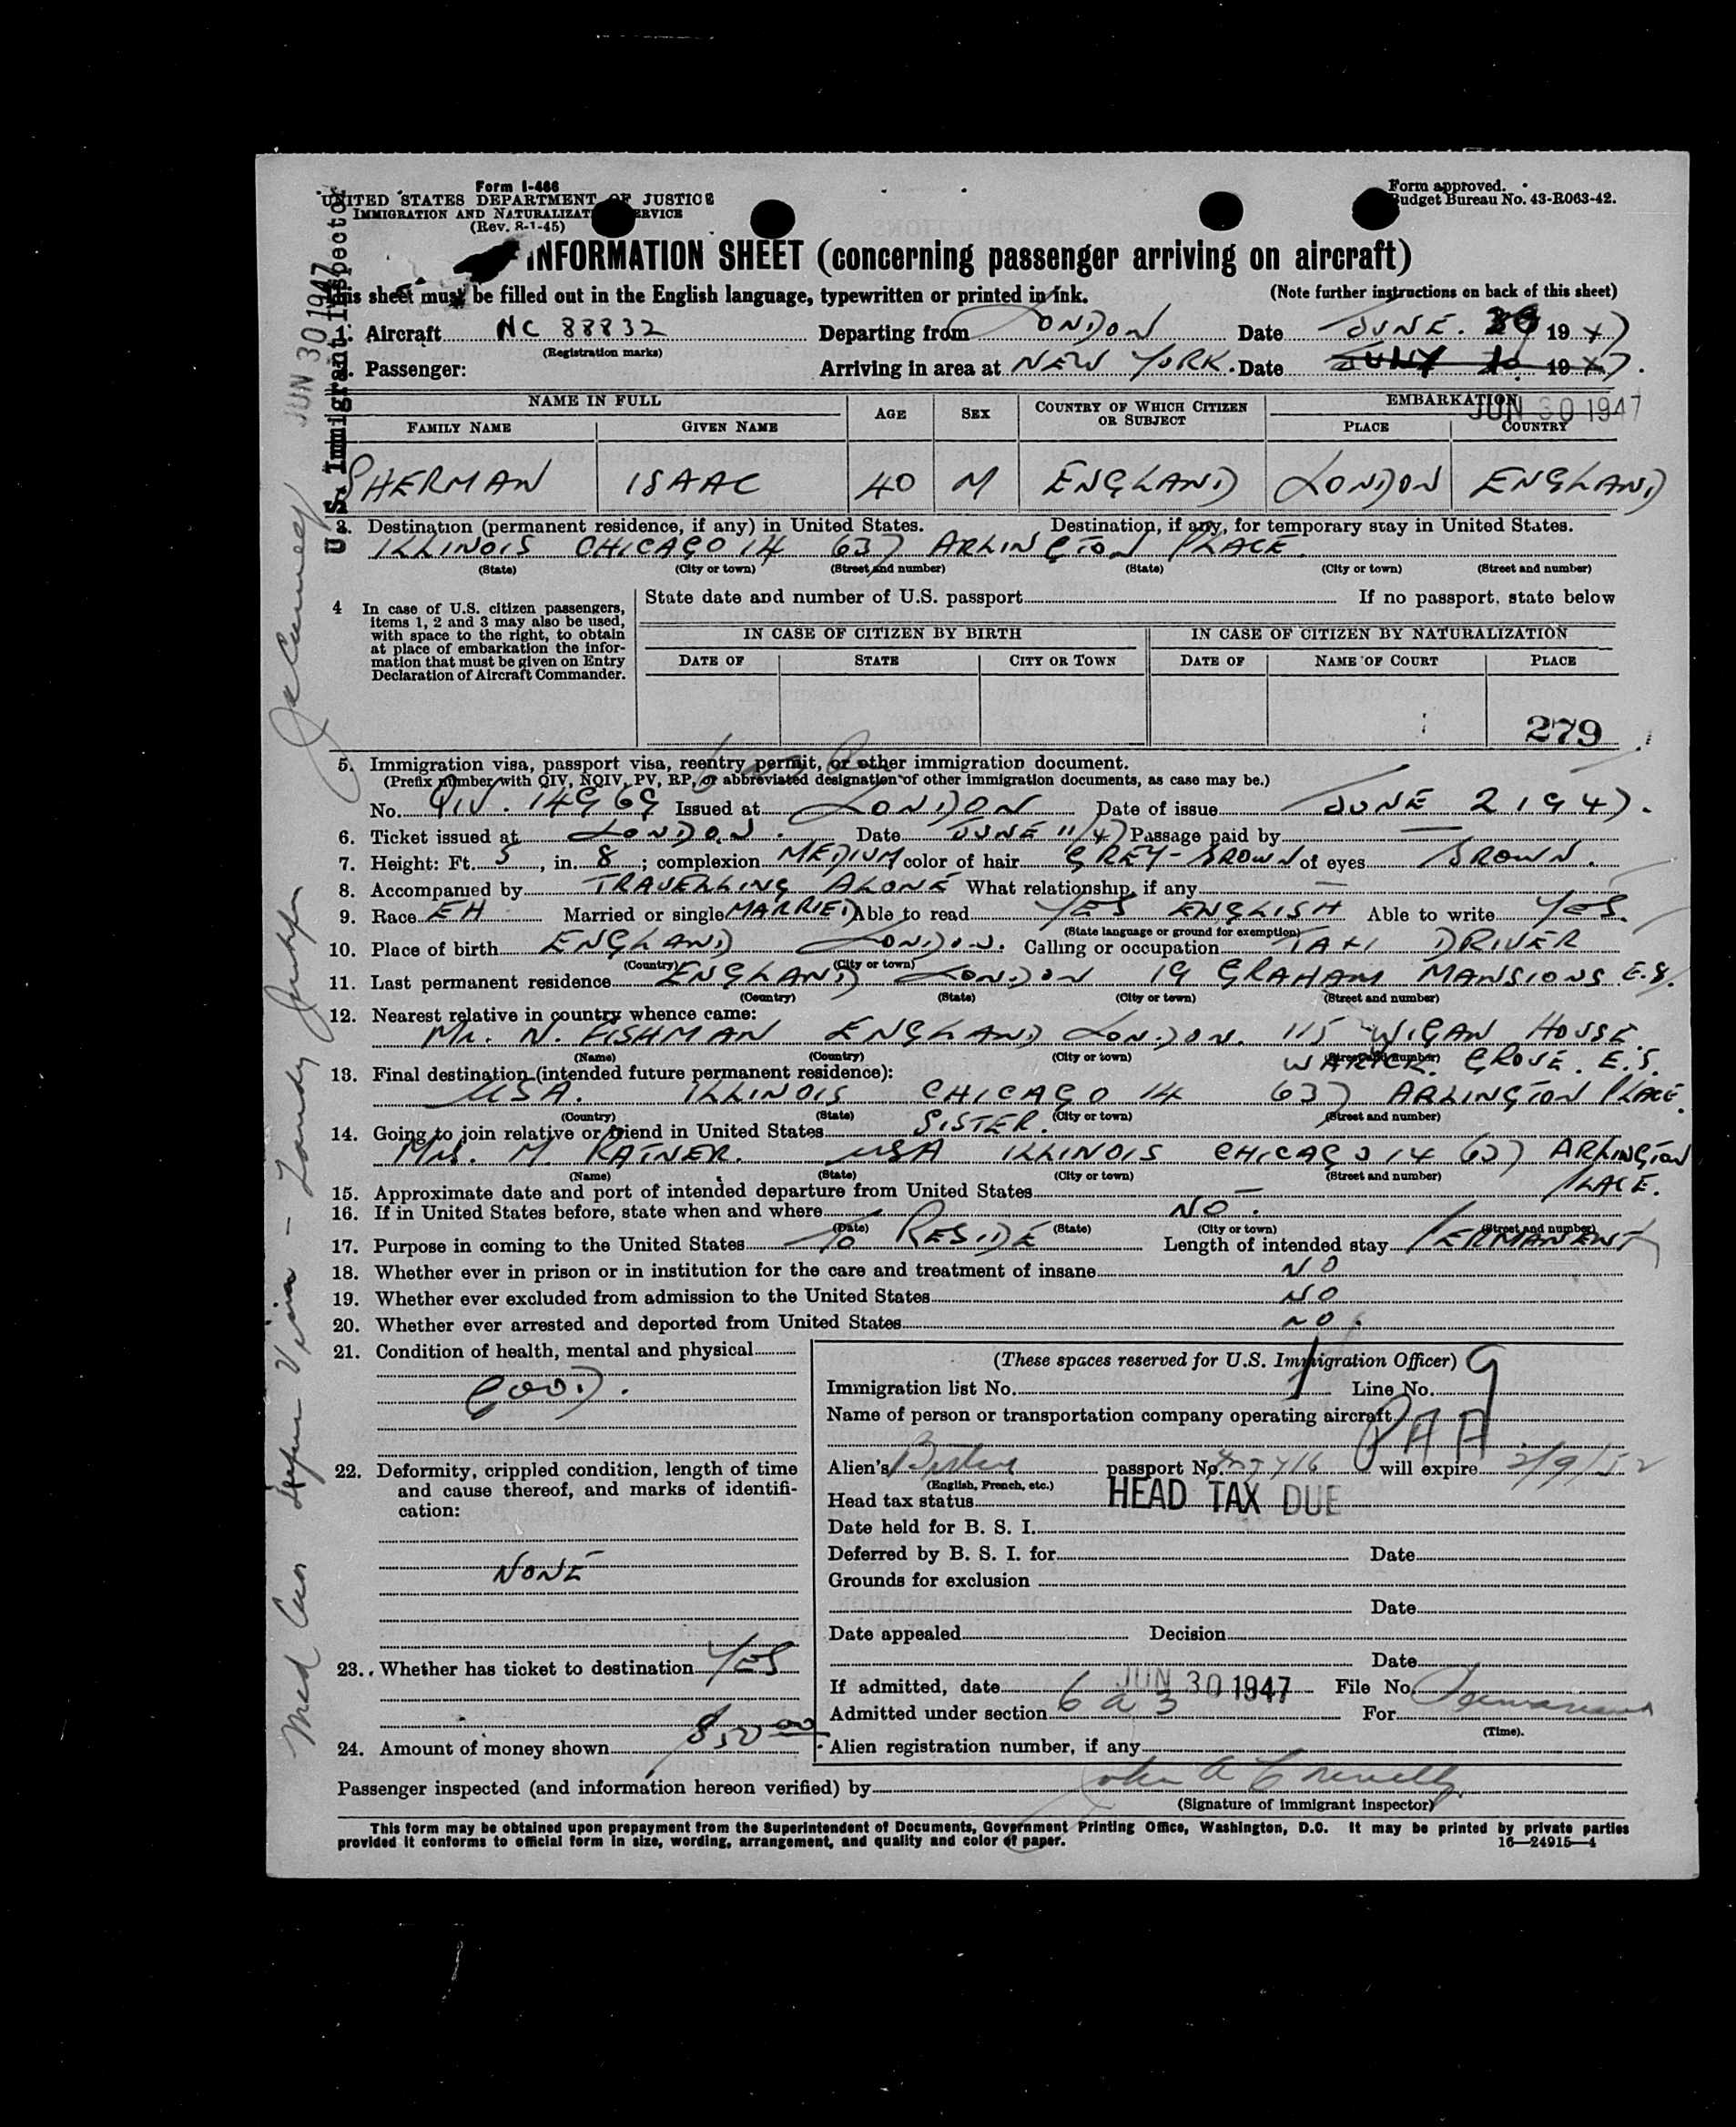 Form I-466
UNITED STATES DEPARTMENT OF JUSTICE
IMMIGRATION AND NATURALIZATION SERVICE
(Rev. 8-1-45)
Form approved.
Budget Bureau No. 43-R063-42.
INFORMATION SHEET (concerning passenger arriving on aircraft)
This sheet must be filled out in the English language, typewritten or printed in ink. (Note further instructions on back of this sheet)
1. Aircraft NC 88832 Departing from LONDON Date JUNE. 19 47
(Registration marks)
2. Passenger: Arriving in area at NEW YORK. Date 19 47.
JUN 30 1947
NAME IN FULL AGE SEX COUNTRY OF WHICH CITIZEN OR SUBJECT EMBARKATION
FAMILY NAME GIVEN NAME PLACE COUNTRY
SHERMAN ISAAC 40 M ENGLAND LONDON ENGLAND
3. Destination (permanent residence, if any) in United States. Destination, if any, for temporary stay in United States.
ILLINOIS CHICAGO 14 637 ARLINGTON PLACE.
(State) (City or town) (Street and number) (State) (City or town) (Street and number)
4 In case of U.S. citizen passengers, items 1, 2 and 3 may also be used, with space to the right, to obtain at place of embarkation the information that must be given on Entry Declaration of Aircraft Commander.
State date and number of U.S. passport If no passport, state below
IN CASE OF CITIZEN BY BIRTH IN CASE OF CITIZEN BY NATURALIZATION
DATE OF STATE CITY OR TOWN DATE OF NAME OF COURT PLACE
279
5. Immigration visa, passport visa, reentry permit, or other immigration document.
(Prefix number with QIV, NQIV, PV, RP, or abbreviated designation of other immigration documents, as case may be.)
No. QIV. 14969 Issued at LONDON Date of issue JUNE 2 1947.
6. Ticket issued at LONDON. Date JUNE 11/47 Passage paid by —
7. Height: Ft. 5, in. 8; complexion MEDIUM color of hair GREY-BROWN of eyes BROWN.
8. Accompanied by TRAVELLING ALONE What relationship, if any —
9. Race EH Married or single MARRIED Able to read YES ENGLISH Able to write YES.
(State language or ground for exemption)
10. Place of birth ENGLAND LONDON. Calling or occupation TAXI DRIVER
(Country) (City or town)
11. Last permanent residence ENGLAND LONDON 19 GRAHAM MANSIONS E.8.
(Country) (State) (City or town) (Street and number)
12. Nearest relative in country whence came:
Mr. N. FISHMAN ENGLAND LONDON. 115 WIGAN HOUSE.
(Name) (Country) (City or town) (Street and number)
GROVE. E.5.
13. Final destination (intended future permanent residence):
USA. ILLINOIS CHICAGO 14 637 ARLINGTON PLACE.
(Country) (State) (City or town) (Street and number)
14. Going to join relative or friend in United States SISTER.
Mrs. M. RATNER. USA ILLINOIS CHICAGO 14 637 ARLINGTON
(Name) (State) (City or town) (Street and number)
PLACE.
15. Approximate date and port of intended departure from United States —
16. If in United States before, state when and where NO.
(Date) (State) (City or town) (Street and number)
17. Purpose in coming to the United States TO RESIDE Length of intended stay PERMANENT
18. Whether ever in prison or in institution for the care and treatment of insane NO
19. Whether ever excluded from admission to the United States NO
20. Whether ever arrested and deported from United States NO.
21. Condition of health, mental and physical
GOOD.
22. Deformity, crippled condition, length of time and cause thereof, and marks of identification:
NONE
23. Whether has ticket to destination YES
24. Amount of money shown $50 00
(These spaces reserved for U.S. Immigration Officer)
Immigration list No. 1 Line No. 9
Name of person or transportation company operating aircraft PAA
Alien's British passport No. will expire 2/9/52
(English, French, etc.)
Head tax status HEAD TAX DUE
Date held for B. S. I.
Deferred by B. S. I. for Date
Grounds for exclusion
Date
Date appealed Decision
Date
If admitted, date JUN 30 1947 File No.
Admitted under section 6 a 3 For Permanent
(Time).
Alien registration number, if any
Passenger inspected (and information hereon verified) by John A
(Signature of immigrant inspector)
This form may be obtained upon prepayment from the Superintendent of Documents, Government Printing Office, Washington, D.C. It may be printed by private parties
provided it conforms to official form in size, wording, arrangement, and quality and color of paper.
16—24915-4
JUN 30 1947
U.S. Immigrant Inspector